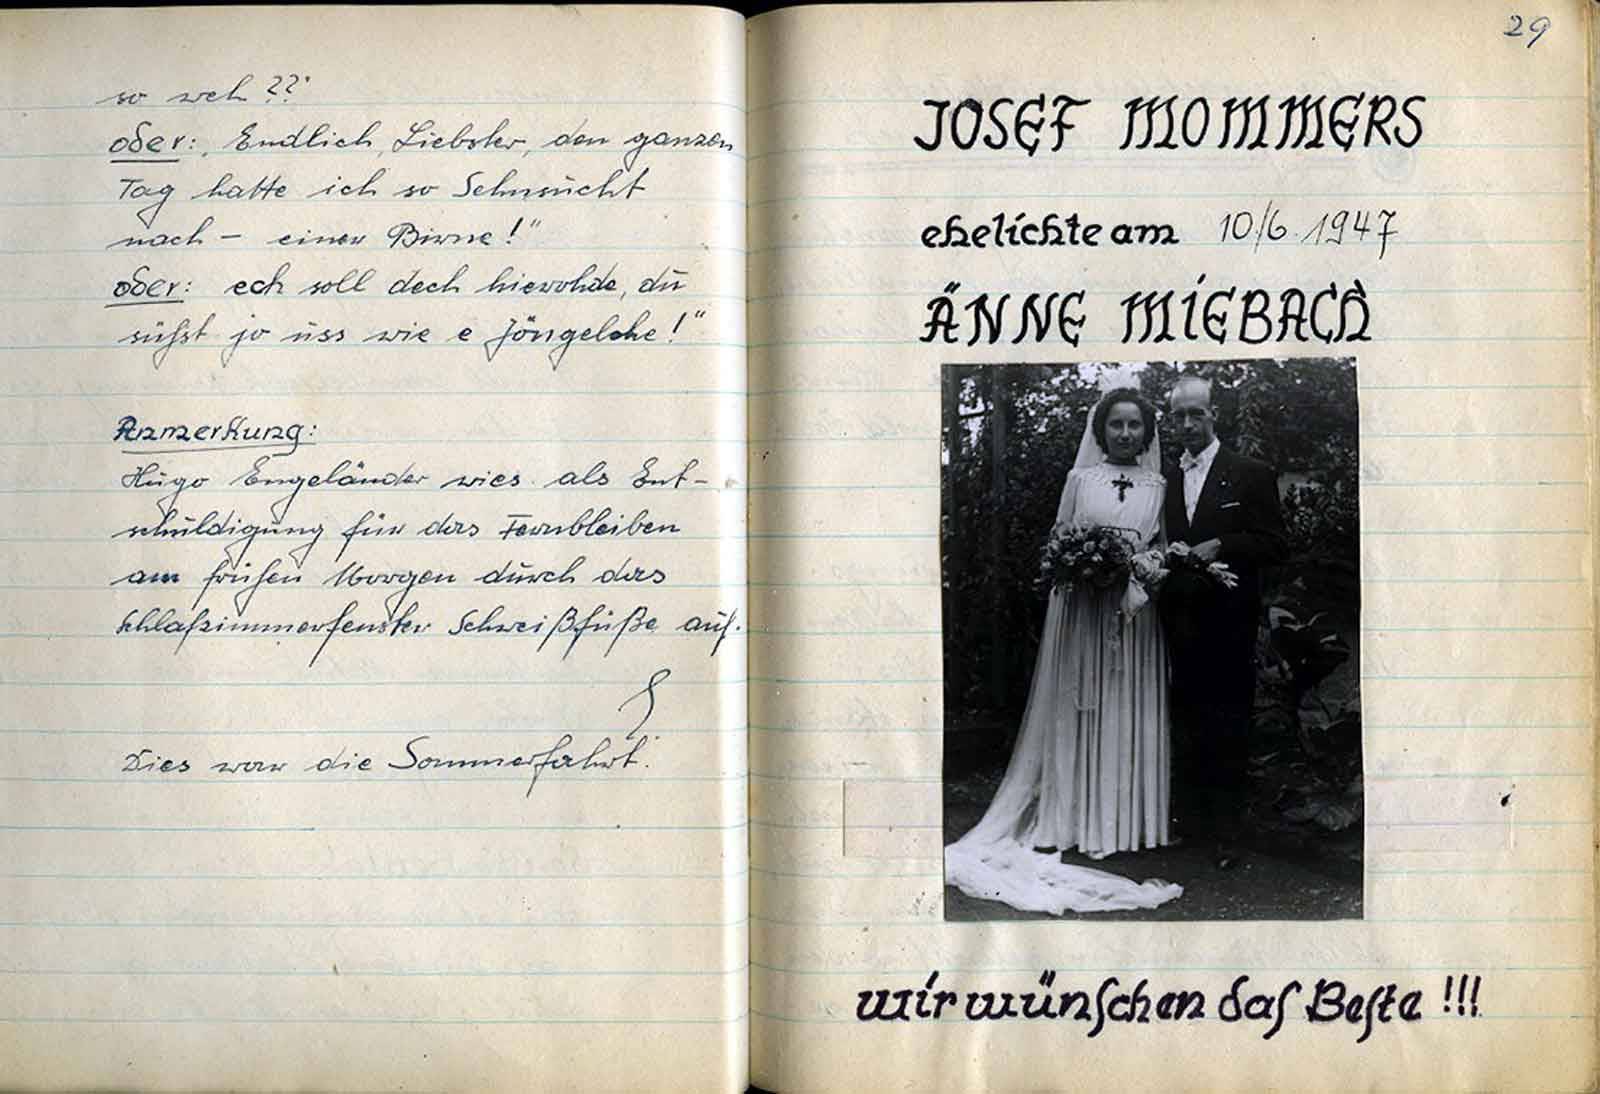 so weh ??"
oder: „Endlich, Liebster, den ganzen
Tag hatte ich so Sehnsucht
nach – einer Birne!"
oder: ech soll dech hierohde, du
sühst jo uss wie e Jöngelche!"
Anmerkung:
Hugo Engeländer wies als Ent-
schuldigung für das Fernbleiben
am frühen Morgen durch das
Schlafzimmerfenster Schweißfüße auf.
Dies war die Sommerfahrt.
29
JOSEF MOMMERS
ehelichte am 10/6. 1947
ÄNNE MIEBACH
wir wünſchen daſ Beſte !!!